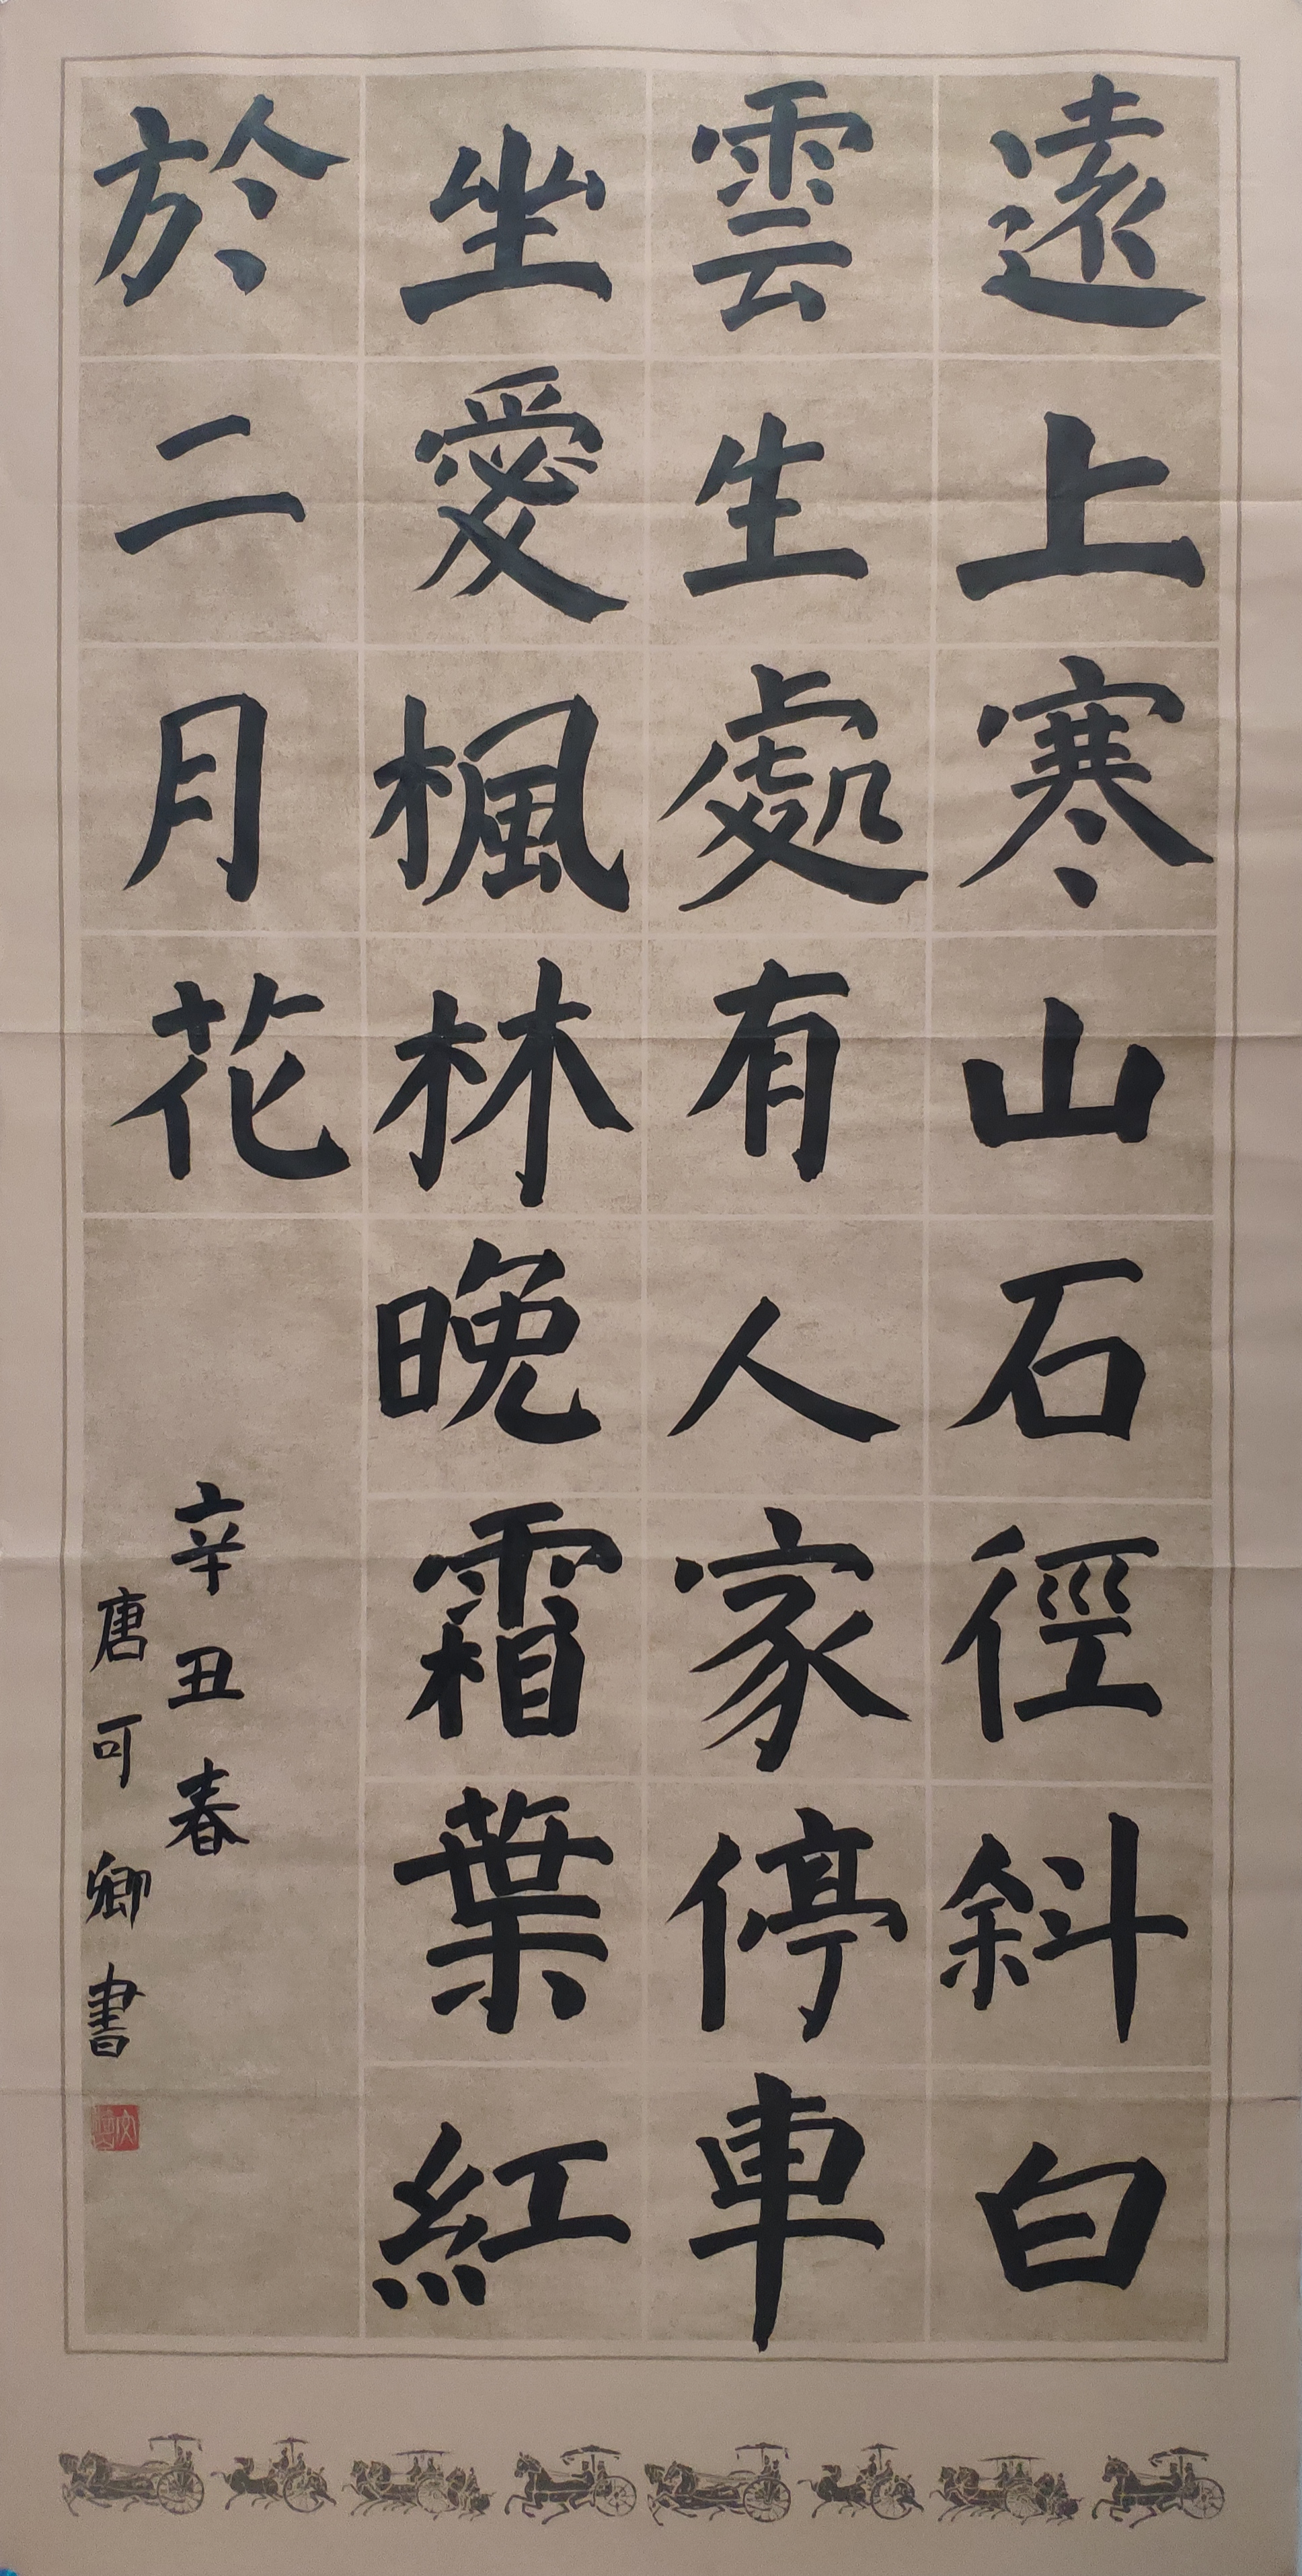 遠上寒山石徑斜白
雲生處有人家停車
坐愛楓林晚霜葉紅
於二月花
辛丑春
唐可卿書